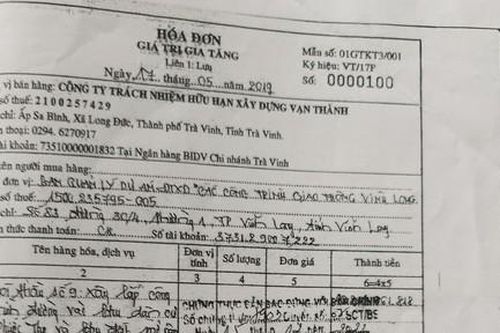 HÓA ĐƠN
GIÁ TRỊ GIA TĂNG
Liên 1: Lưu
Ngày 17 tháng 05 năm 2019
Mẫu số: 01GTKT3/001
Ký hiệu: VT/17P
Số: 0000100
vị bán hàng: CÔNG TY TRÁCH NHIỆM HỮU HẠN XÂY DỰNG VẠN THÀNH
số thuế: 2100257429
chỉ: Ấp Sa Bình, Xã Long Đức, Thành phố Trà Vinh, Tỉnh Trà Vinh.
thoại: 0294. 6270917
tài khoản: 73510000001832 Tại Ngân hàng BIDV Chi nhánh Trà Vinh
tên người mua hàng:
đơn vị: BAN QUẢN LÝ DỰ ÁN ĐTXD CÁC CÔNG TRÌNH GIAO THÔNG VĨNH LONG
số thuế: 1500 235795-005
chỉ: Số 83, đường 30/4, Phường 1, TP Vĩnh Long, tỉnh Vĩnh Long
thức thanh toán: CK Số tài khoản:
Tên hàng hóa, dịch vụ Đơn vị tính Số lượng Đơn giá Thành tiền
2 3 4 5 6=4x5
thầu số 9: Xây lắp công
CHỨNG THỰC BẢN SAO ĐÚNG VỚI BẢN CHÍNH
Số chứng thực SCT/BS